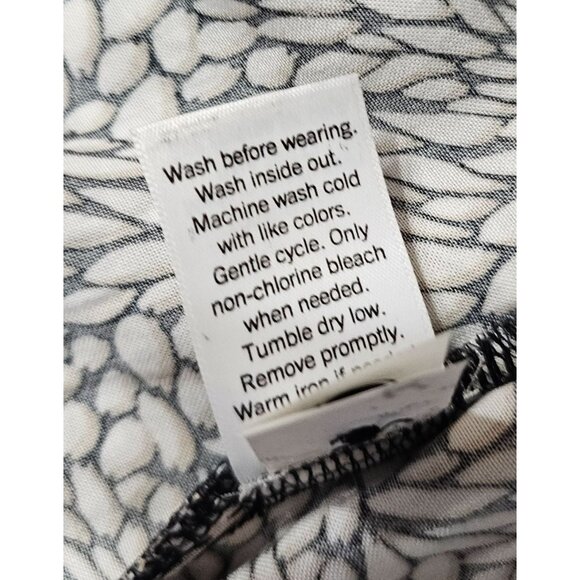 Wash before wearing.
Wash inside out.
Machine wash cold
with like colors.
Gentle cycle. Only
non-chlorine bleach
when needed.
Tumble dry low.
Remove promptly.
Warm iron if